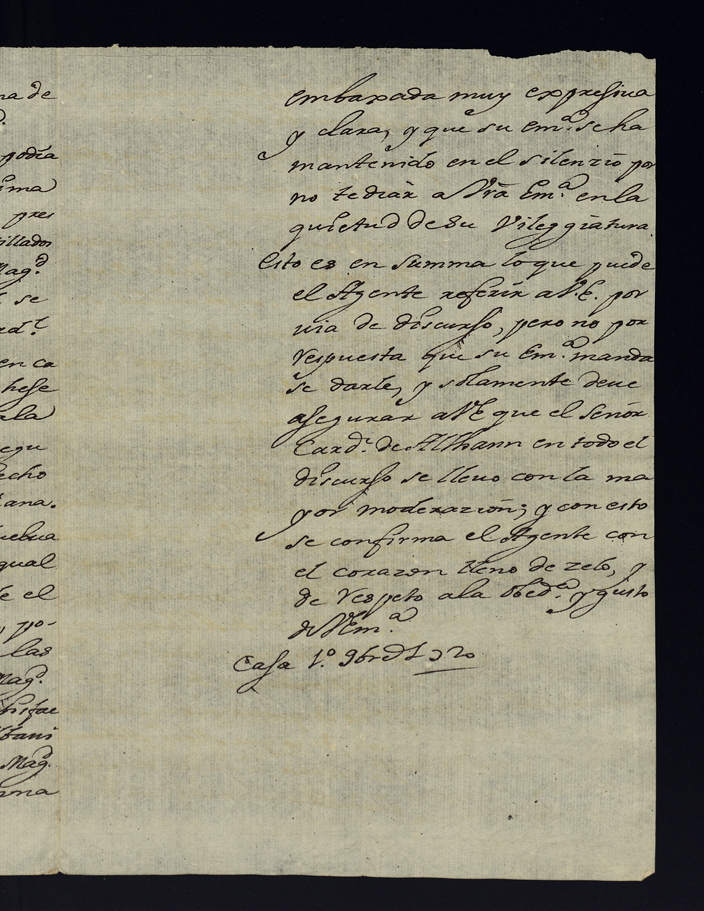 na de
podia
ma
pres
sillados
Mag.d
se
en ca
hese
ala
egu
echo
tana.
qual
e el
, po-
las
Mag.
Mag.
embaxada muy expresiua
y clara, y que su Em.a se ha
mantenido en el silenzio por
no tediar a Vrã Em.a en la
quietud de su Vileggiatura.
Esto es en summa lo que puede
el Agente referir a V.E. por
uia de discurso, pero no por
respuesta que su Em.a manda
se darle, y solamente deue
asegurar a VE que el señor
Card.l de Althann en todo el
discurso se lleuo con la ma
yor moderazion; y con esto
se confirma el Agente con
el corazon lleno de zelo, y
de respeto a la obed.a y gusto
de VEm.a
Casa 1.o 9bre